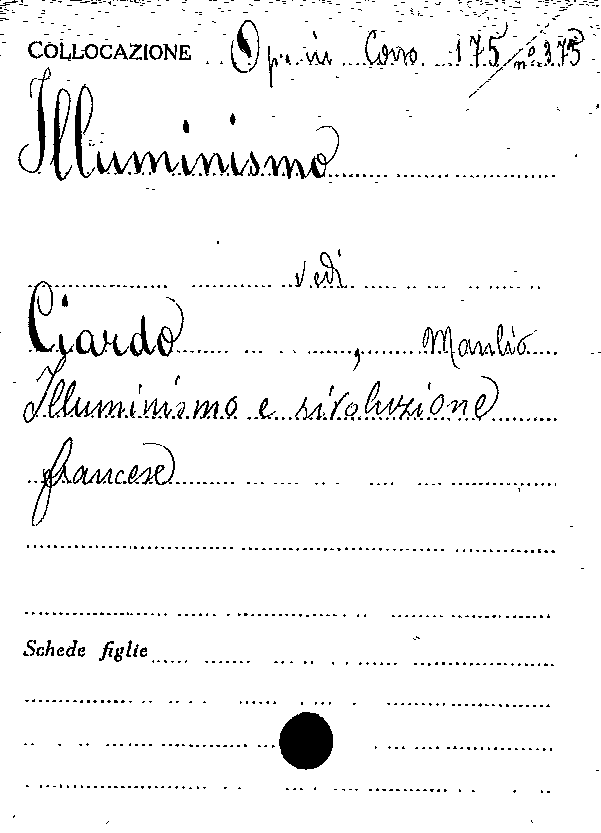 COLLOCAZIONE Op. in Corso 175/nº 375
Illuminismo
vedi
Ciardo, Manlio
Illuminismo e rivoluzione
francese
Schede figlie